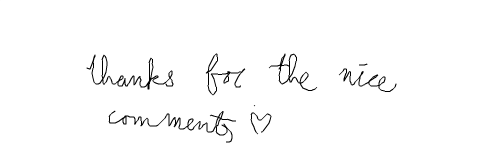 thanks for the nice
comments ♡